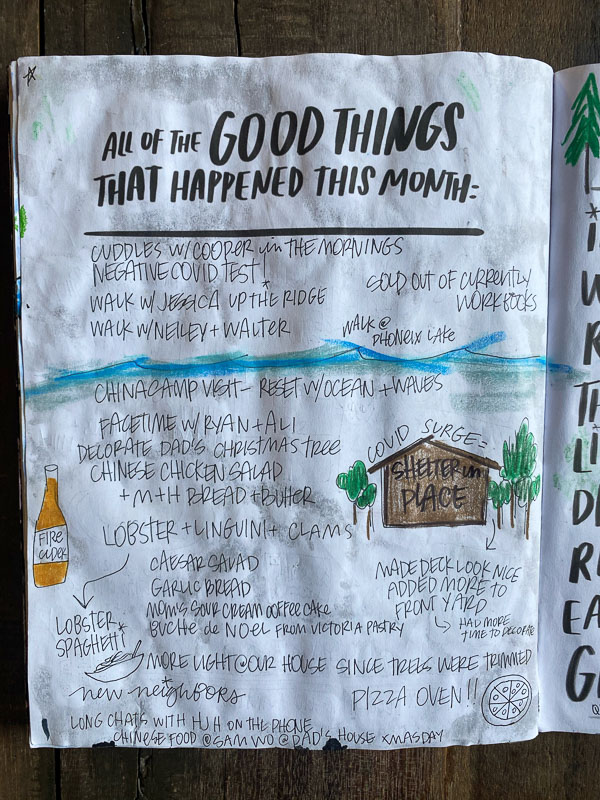 ALL OF THE GOOD THINGS
THAT HAPPENED THIS MONTH:
CUDDLES W/ COOPER in THE MORNINGS
NEGATIVE COVID TEST!
SOLD OUT OF CURRENTLY
WORKBOOKS
WALK W/ JESSICA UP THE RIDGE
WALK W/ NEILEY + WALTER
WALK @
PHONEIX LAKE
CHINA CAMP VISIT - RESET W/ OCEAN + WAVES
FACETIME W/ RYAN + ALI
DECORATE DAD'S CHRISTMAS TREE
CHINESE CHICKEN SALAD
+ M+H BREAD + BUTTER
COVID SURGE =
SHELTER in
PLACE
FIRE
CIDER
LOBSTER + LINGUINI + CLAMS
CAESAR SALAD
GARLIC BREAD
MOM'S SOUR CREAM COFFEE CAKE
BUCHE de NOEL FROM VICTORIA PASTRY
MADE DECK LOOK NICE
ADDED MORE TO
FRONT YARD
HAD MORE
TIME TO DECORATE
LOBSTER
SPAGHETTI
MORE LIGHT @ OUR HOUSE SINCE TREES WERE TRIMMED
new neighbors
PIZZA OVEN!!
LONG CHATS WITH HJH ON THE PHONE
CHINESE FOOD @ SAM WO @ DAD'S HOUSE XMAS DAY